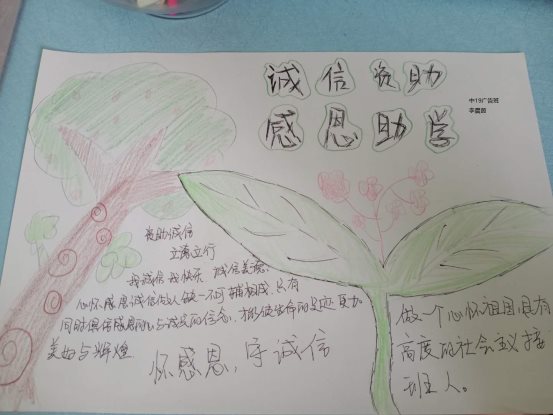 诚信资助
感恩助学
中19广告班
资助诚信
立德立行
我诚信 我快乐 诚信美德
心怀感恩诚信做人缺一不可 辅相成 只有
同时俱备感恩的心与诚实的信念,才能使生命的足迹更加
美好与辉煌
怀感恩,守诚信
做一个心怀祖国具有
高度的社会主义接
班人。